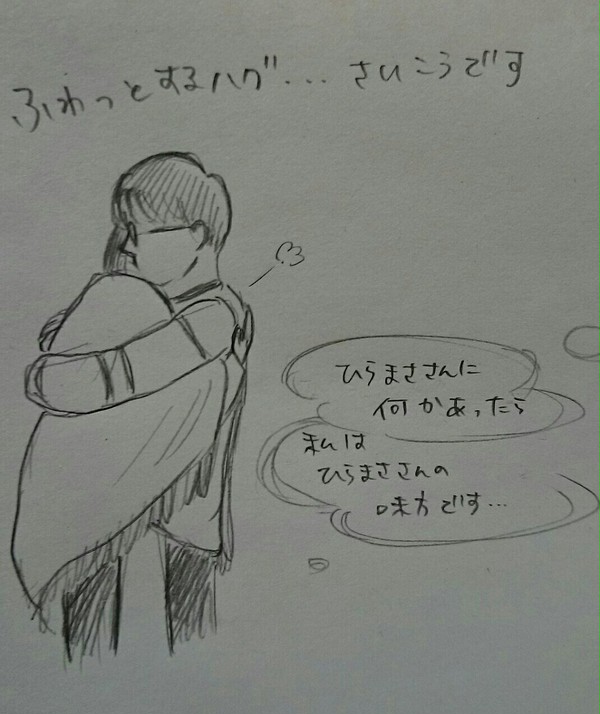 ふわっとするハグ… さいこうです
ひらまささんに
何かあったら
私は
ひらまささんの
味方です…